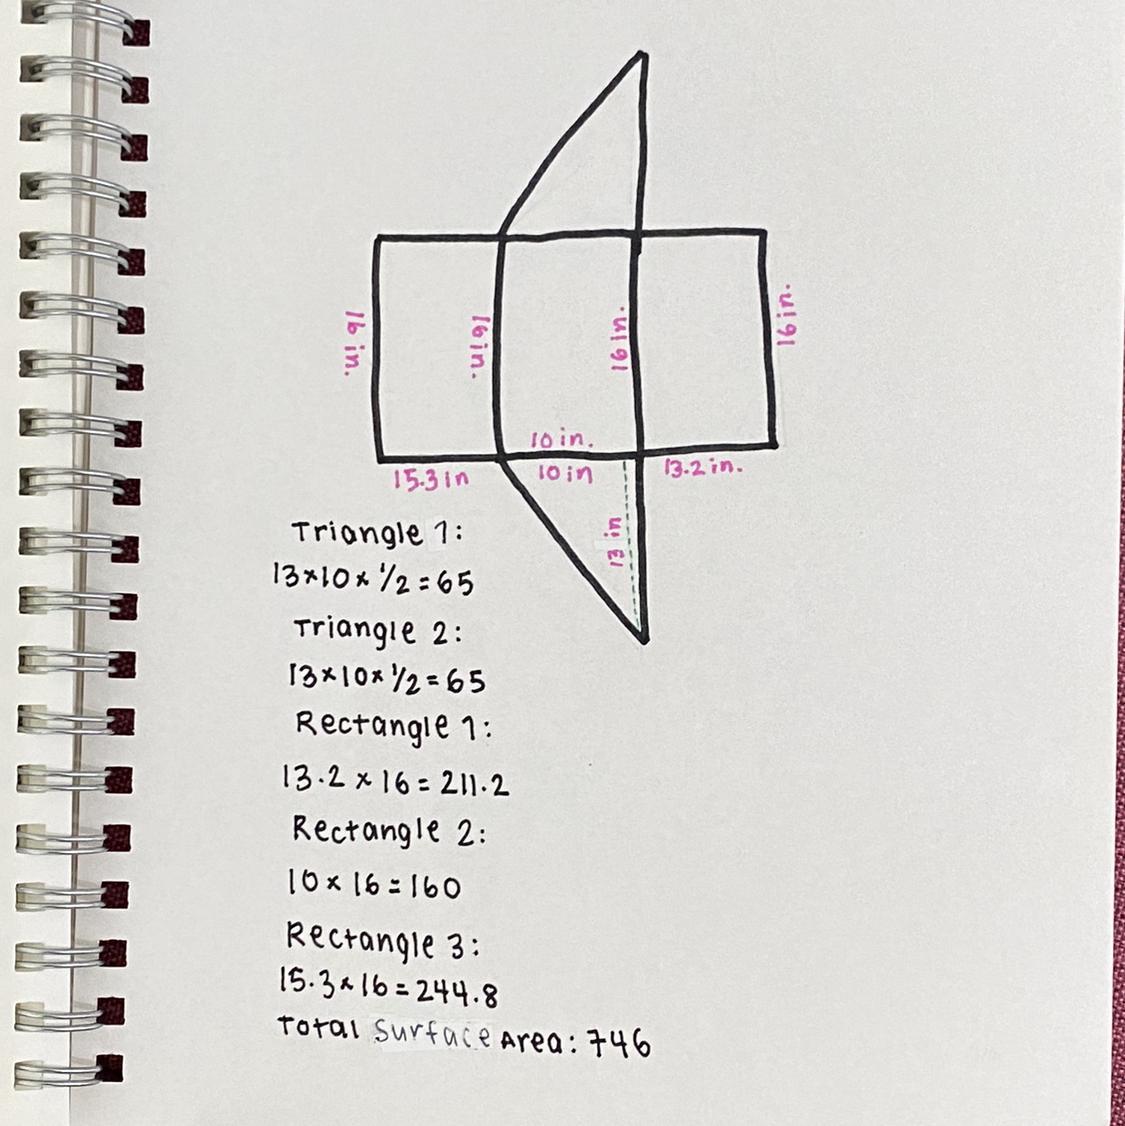 16 in.
16 in.
16 in.
16 in.
10 in.
15.3 in
10 in
13.2 in.
13 in
Triangle 1:
13 × 10 × 1/2 = 65
Triangle 2:
13 × 10 × 1/2 = 65
Rectangle 1:
13.2 × 16 = 211.2
Rectangle 2:
10 × 16 = 160
Rectangle 3:
15.3 × 16 = 244.8
Total Surface Area: 746